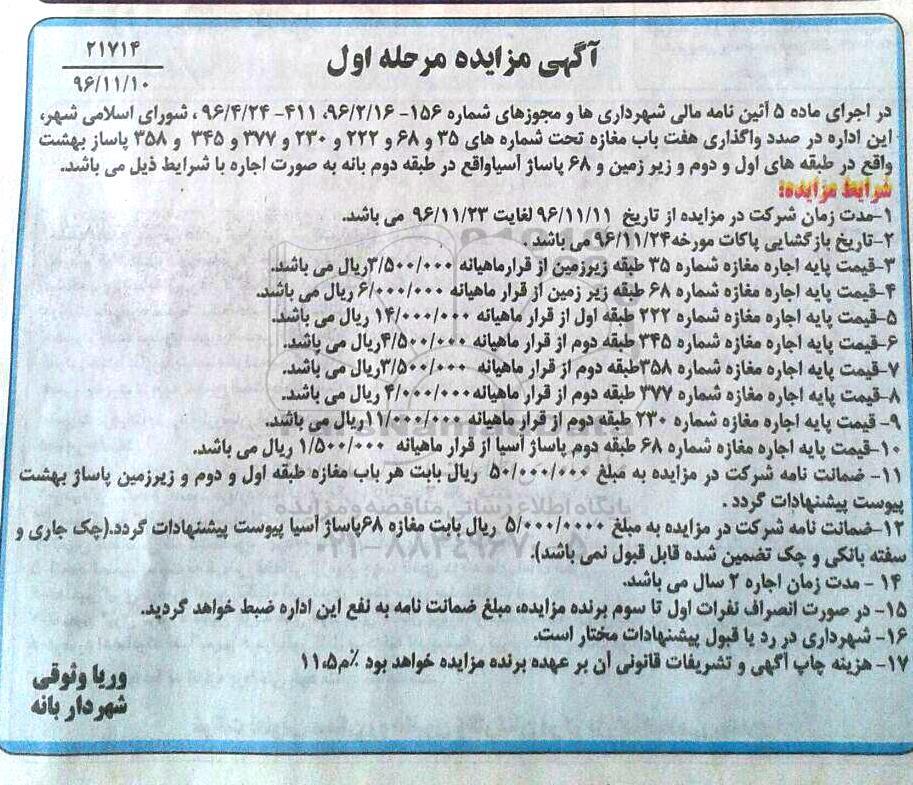 آگهی مزایده مرحله اول
۲۱۷۱۴
۹۶/۱۱/۱۰
در اجرای ماده ۵ آئین نامه مالی شهرداری ها و مجوزهای شماره ۱۵۶- ۹۶/۲/۱۶، ۴۱۱- ۹۶/۴/۲۴ ، شورای اسلامی شهر،
این اداره در صدد واگذاری هفت باب مغازه تحت شماره های ۳۵ و ۶۸ و ۲۲۲ و ۲۳۰ و ۳۷۷ و ۳۴۵ و ۳۵۸ پاساژ بهشت
واقع در طبقه های اول و دوم و زیر زمین و ۶۸ پاساژ آسیاواقع در طبقه دوم بانه به صورت اجاره با شرایط ذیل می باشد.
شرایط مزایده:
۱-مدت زمان شرکت در مزایده از تاریخ ۹۶/۱۱/۱۱ لغایت ۹۶/۱۱/۲۳ می باشد.
۲-تاریخ بازگشایی پاکات مورخه۹۶/۱۱/۲۴ می باشد .
۳-قیمت پایه اجاره مغازه شماره ۳۵ طبقه زیرزمین از قرارماهیانه ۳/۵۰۰/۰۰۰ریال می باشد.
۴-قیمت پایه اجاره مغازه شماره ۶۸ طبقه زیر زمین از قرار ماهیانه ۶/۰۰۰/۰۰۰ ریال می باشد.
۵-قیمت پایه اجاره مغازه شماره ۲۲۲ طبقه اول از قرار ماهیانه ۱۴/۰۰۰/۰۰۰ ریال می باشد.
۶-قیمت پایه اجاره مغازه شماره ۳۴۵ طبقه دوم از قرار ماهیانه ۴/۵۰۰/۰۰۰ریال می باشد.
۷-قیمت پایه اجاره مغازه شماره ۳۵۸طبقه دوم از قرار ماهیانه ۳/۵۰۰/۰۰۰ریال می باشد.
۸-قیمت پایه اجاره مغازه شماره ۳۷۷ طبقه دوم از قرار ماهیانه۴/۰۰۰/۰۰۰ ریال می باشد.
۹- قیمت پایه اجاره مغازه شماره ۲۳۰ طبقه دوم از قرار ماهیانه ۱۱/۰۰۰/۰۰۰ریال می باشد.
۱۰-قیمت پایه اجاره مغازه شماره ۶۸ طبقه دوم پاساژ آسیا از قرار ماهیانه ۱/۵۰۰/۰۰۰ ریال می باشد.
۱۱- ضمانت نامه شرکت در مزایده به مبلغ ۵۰/۰۰۰/۰۰۰ ریال بابت هر باب مغازه طبقه اول و دوم و زیرزمین پاساژ بهشت
پیوست پیشنهادات گردد .
۱۲-ضمانت نامه شرکت در مزایده به مبلغ ۵/۰۰۰/۰۰۰۰ ریال بابت مغازه ۶۸پاساژ آسیا پیوست پیشنهادات گردد.(چک جاری و
سفته بانکی و چک تضمین شده قابل قبول نمی باشد).
۱۴ - مدت زمان اجاره ۲ سال می باشد.
۱۵- در صورت انصراف نفرات اول تا سوم برنده مزایده، مبلغ ضمانت نامه به نفع این اداره ضبط خواهد گردید.
۱۶- شهرداری در رد یا قبول پیشنهادات مختار است.
۱۷- هزینه چاپ آگهی و تشریفات قانونی آن بر عهده برنده مزایده خواهد بود ٪م۱۱،۵
وریا وثوقی
شهردار بانه